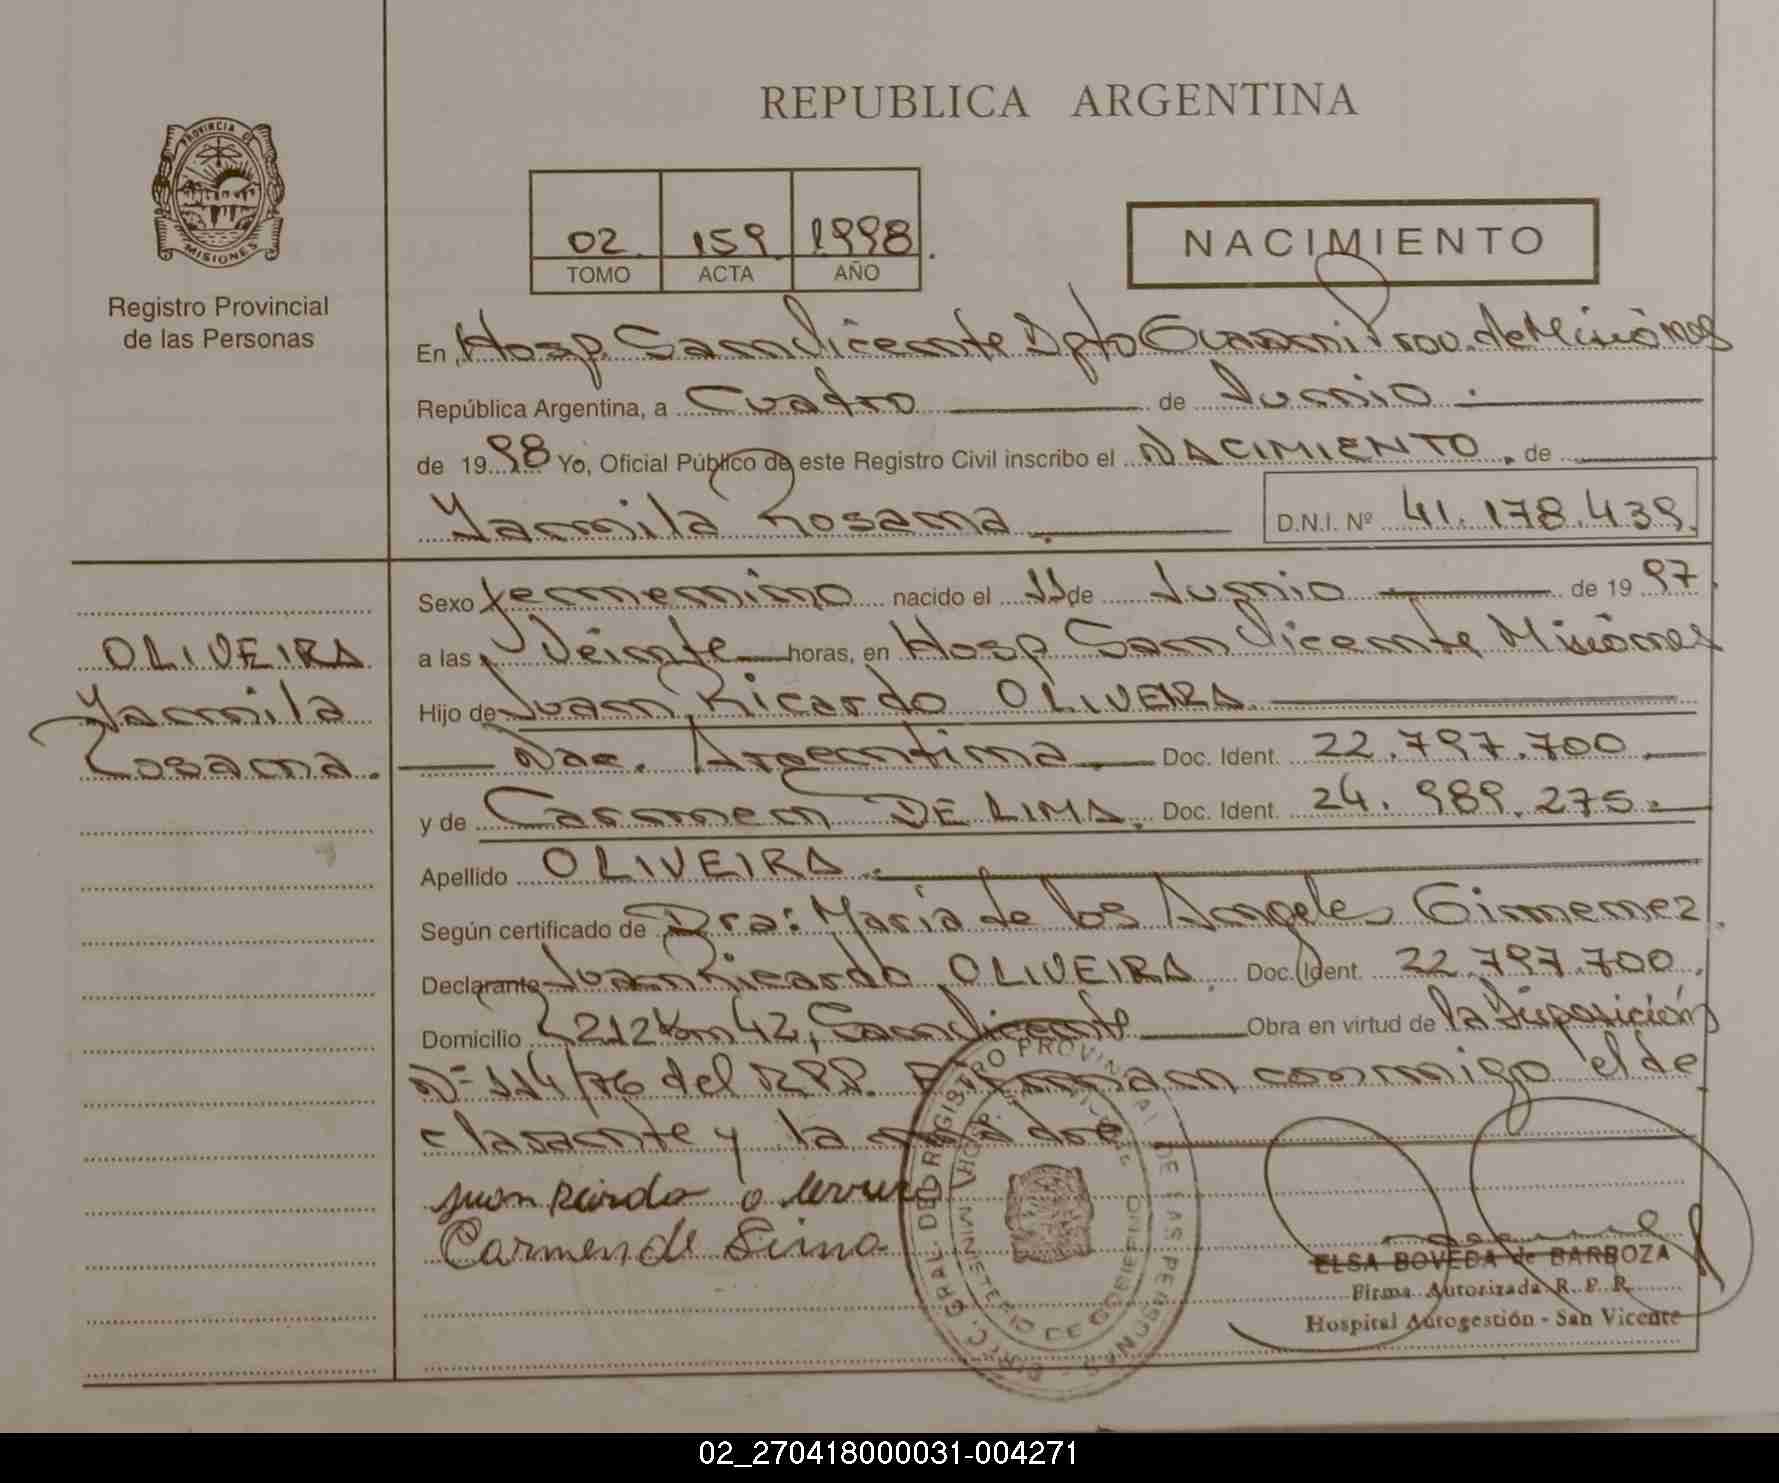 REPUBLICA ARGENTINA
PROVINCIA DE
MISIONES
Registro Provincial
de las Personas
02 159 1998
TOMO ACTA AÑO
NACIMIENTO
En Hosp. San Vicente Dpto Guarani Prov. de Misiones
República Argentina, a Cuatro de Junio
de 1998 Yo, Oficial Público de este Registro Civil inscribo el NACIMIENTO de
Yamila Rosana D.N.I. Nº 41.178.439.
OLIVEIRA
Yamila
Rosana.
Sexo femenino nacido el 11 de Junio de 1997
a las Veinte horas, en Hosp San Vicente Misiones
Hijo de Juan Ricardo OLIVEIRA
Nac. Argentina Doc. Ident. 22.797.700
y de Carmen DE LIMA. Doc. Ident. 24.989.275
Apellido OLIVEIRA
Según certificado de Dra: Maria de los Angeles Gimenez
Declarante Juan Ricardo OLIVEIRA Doc. Ident. 22.797.700
Domicilio 212 Km 42, San Vicente Obra en virtud de la disposición
Nº 114/76 del R.P.P. Firman conmigo el de
clarante y la madre
Juan Ricardo
Carmen de Lima
DIREC. GRAL. DEL REGISTRO PROVINCIAL DE LAS PERSONAS
MINISTERIO DE GOBIERNO
ELSA BOVEDA de BARBOZA
Firma Autorizada R. P. P.
Hospital Autogestión - San Vicente
02_270418000031-004271